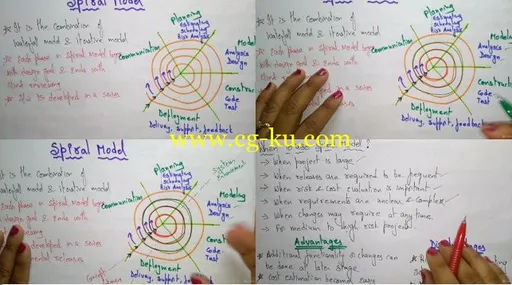 Spiral Model
* It is the Combination of
waterfall model & iterative model
* Each phase in spiral model begins
with design goal & Ends with
client reviewing
* It is developed in a series
Planning
Estimating
Scheduling
Risk Analysis
Communication
Modeling
Analysis
Design
Construct
Code
Test
Deployment
Delivery, Support, feedback
* It is the Combination of
waterfall model & iterative model
* Each phase in spiral model
with design goal &
client reviewing
Planning
Estimating
Scheduling
Risk Analysis
Communication
Modeli
Analysis
Design
Construct
Code
Test
Deployment
Delivery, Support, feedback
www.cg-ku.com
Spiral Model
is the Combination of
waterfall model & iterative model
phase in spiral model
design goal & Ends with
reviewing
developed in a series
incremental releases
Planning
Estimating
Scheduling
Risk Analysis
Communication
Modeling
Analysis
Design
Const
Code
Test
Deployment
Delivery, Support, feedback
Model !
→ When project is large
→ When releases are required to be frequent
→ When risk & cost evaluation is important
→ When requirements are unclear & Complex
→ When changes may require at any time
→ For medium to high risk projects
Advantages
* Additional functionality & changes can
be done at later stage
* Cost estimation becomes easy